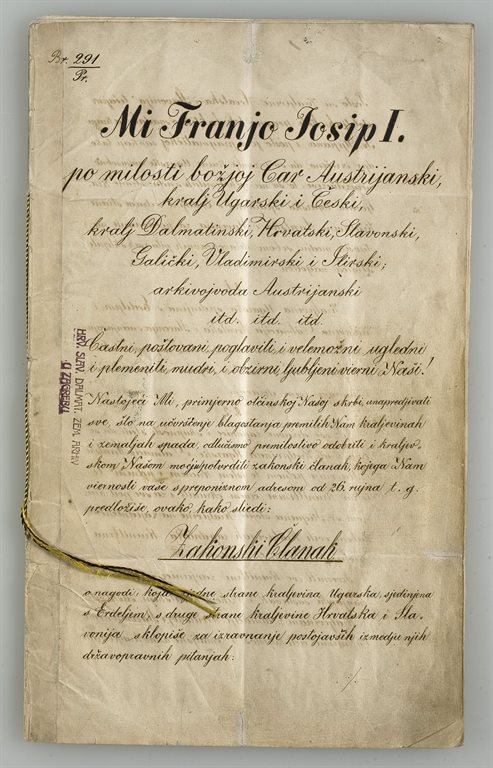 Br. 291
Pr.
Mi Franjo Josip I.
po milosti božjoj Car Austrijanski,
kralj Ugarski i Česki,
kralj Dalmatinski, Hrvatski, Slavonski,
Galički, Vladimirski i Ilirski;
arkivojvoda Austrijanski
itd. itd. itd.
Častni, poštovani, poglaviti, i velemožni, ugledni
i plemeniti, mudri, i obzirni, ljubljeni vierni Naši!
HRV. SLAV. DALMAT. ZEM. ARKIV
U ZAGREBU
Nastojeći Mi, primjerno otčinskoj Našoj skrbi, unapredjivati
sve, što na učvršćenje blagostanja premilih Nam kraljevinah
i zemaljah spada, odlučismo premilostivo odobriti i kraljev-
skom Našom moćju potvrditi zakonski članak, kojega Nam
viernosti vaše s preponiznom adresom od 26. rujna t. g.
predložiše, ovako, kako sliedi:
Zakonski Članak
o nagodi, koju jedne strane kraljevina Ugarska, sjedinjena
s Erdeljem, s druge strane kraljevine Hrvatska i Sla-
vonija sklopiše za izravnanje postojavših izmedju njih
državopravnih pitanjah:
·/.